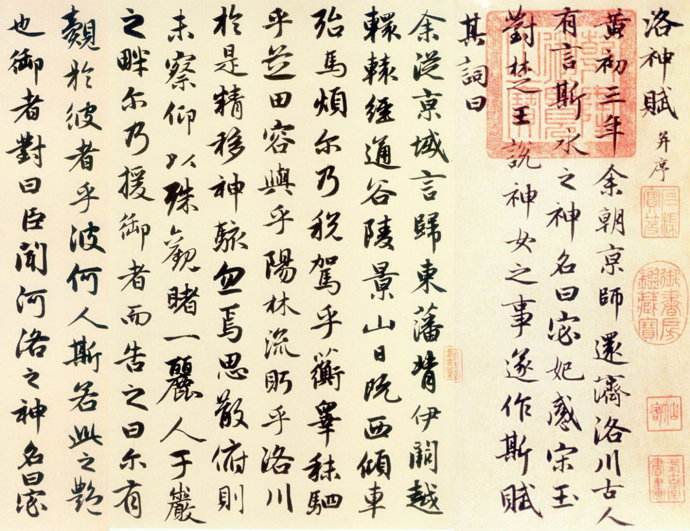 洛神賦 并序
黃初三年余朝京師還濟洛川古人
有言斯水之神名曰宓妃感宋玉
對楚王說神女之事遂作斯賦
其詞曰
余從京域言歸東藩背伊闕越
轘轅經通谷陵景山日既西傾車
殆馬煩尔乃稅駕乎蘅皋秣駟
乎芝田容與乎陽林流眄乎洛川
於是精移神駭忽焉思散俯則
未察仰以殊觀睹一麗人于巖
之畔尔乃援御者而告之曰尔有
覿於彼者乎彼何人斯若此之艷
也御者對曰臣聞河洛之神名曰宓
御書房鑑藏寶